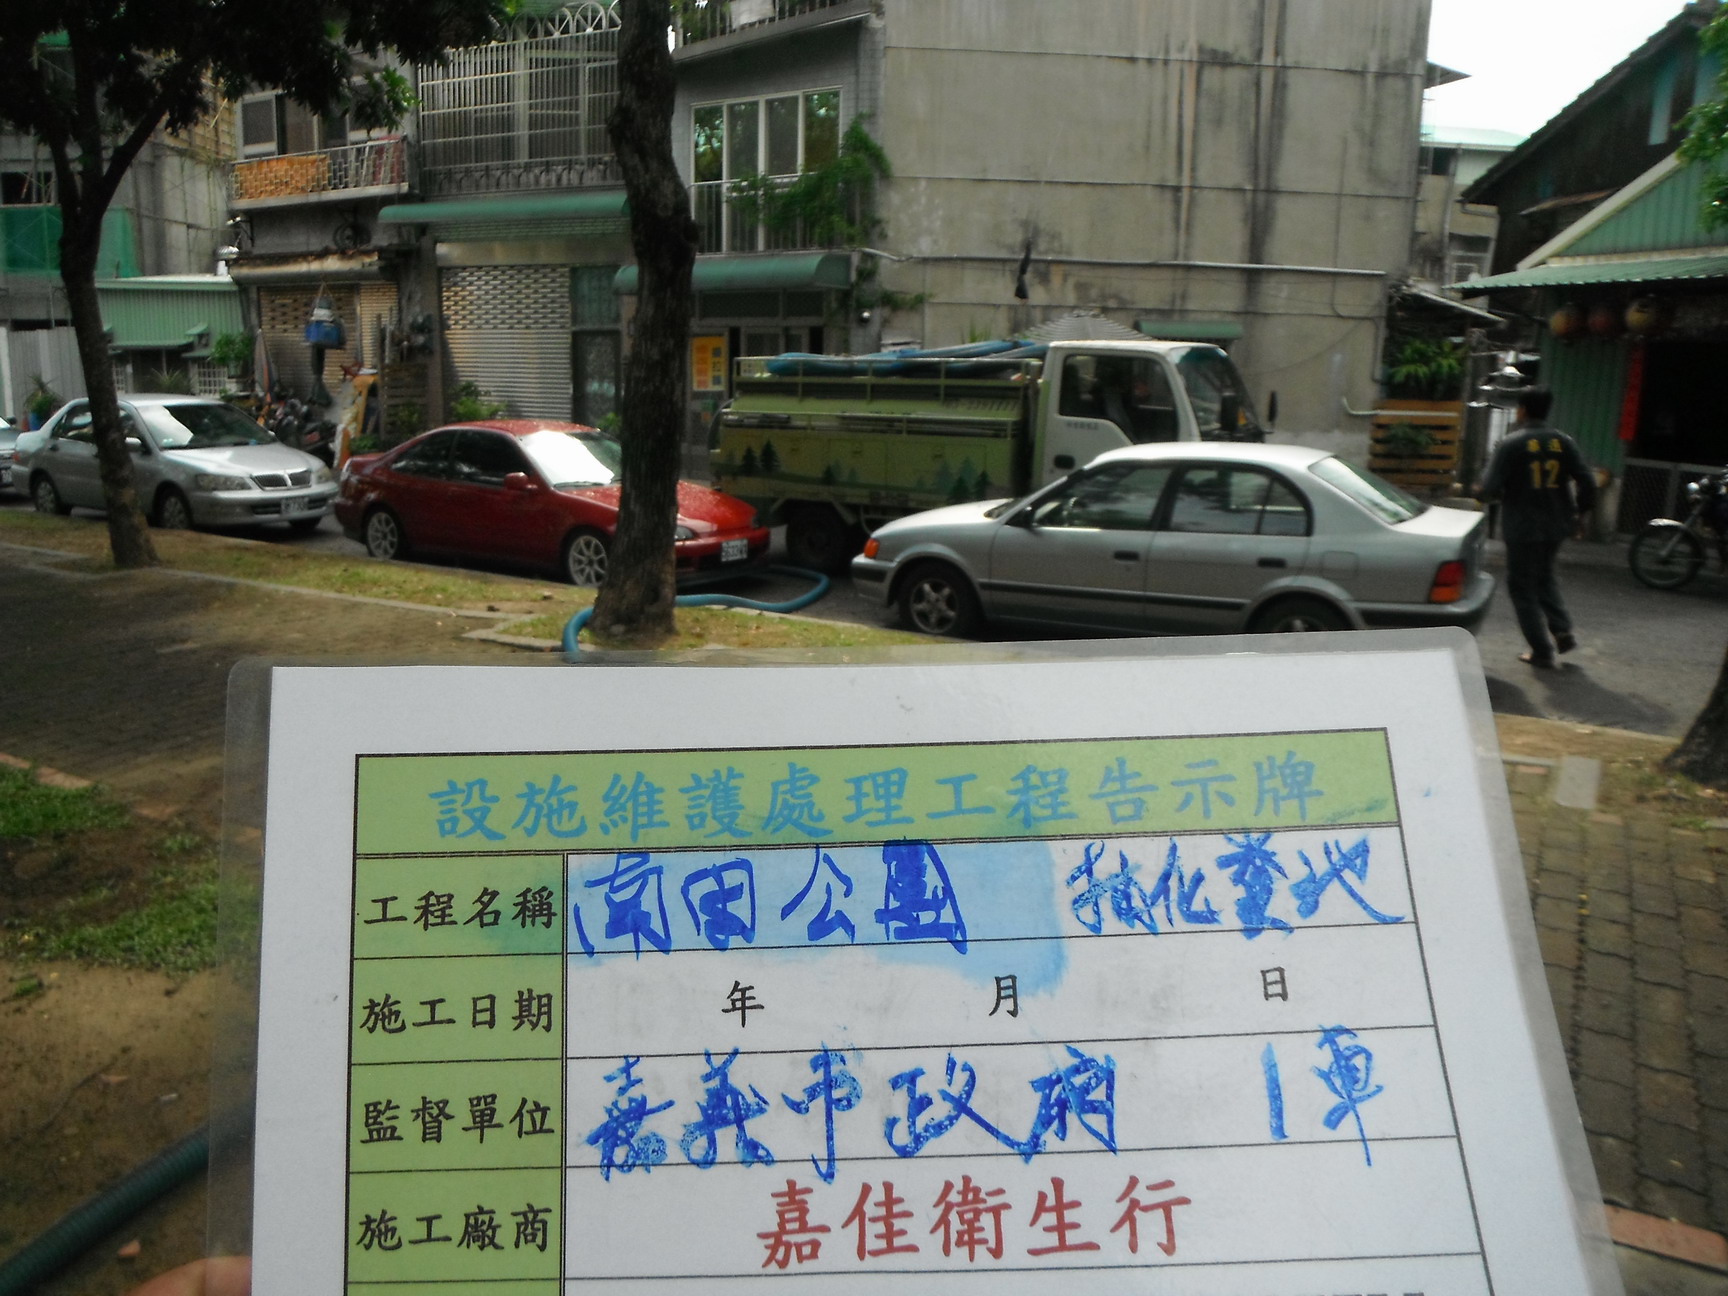 12
設施維護處理工程告示牌
工程名稱 南田公園 抽化糞池
施工日期 年 月 日
監督單位 嘉義市政府 1車
施工廠商 嘉佳衛生行